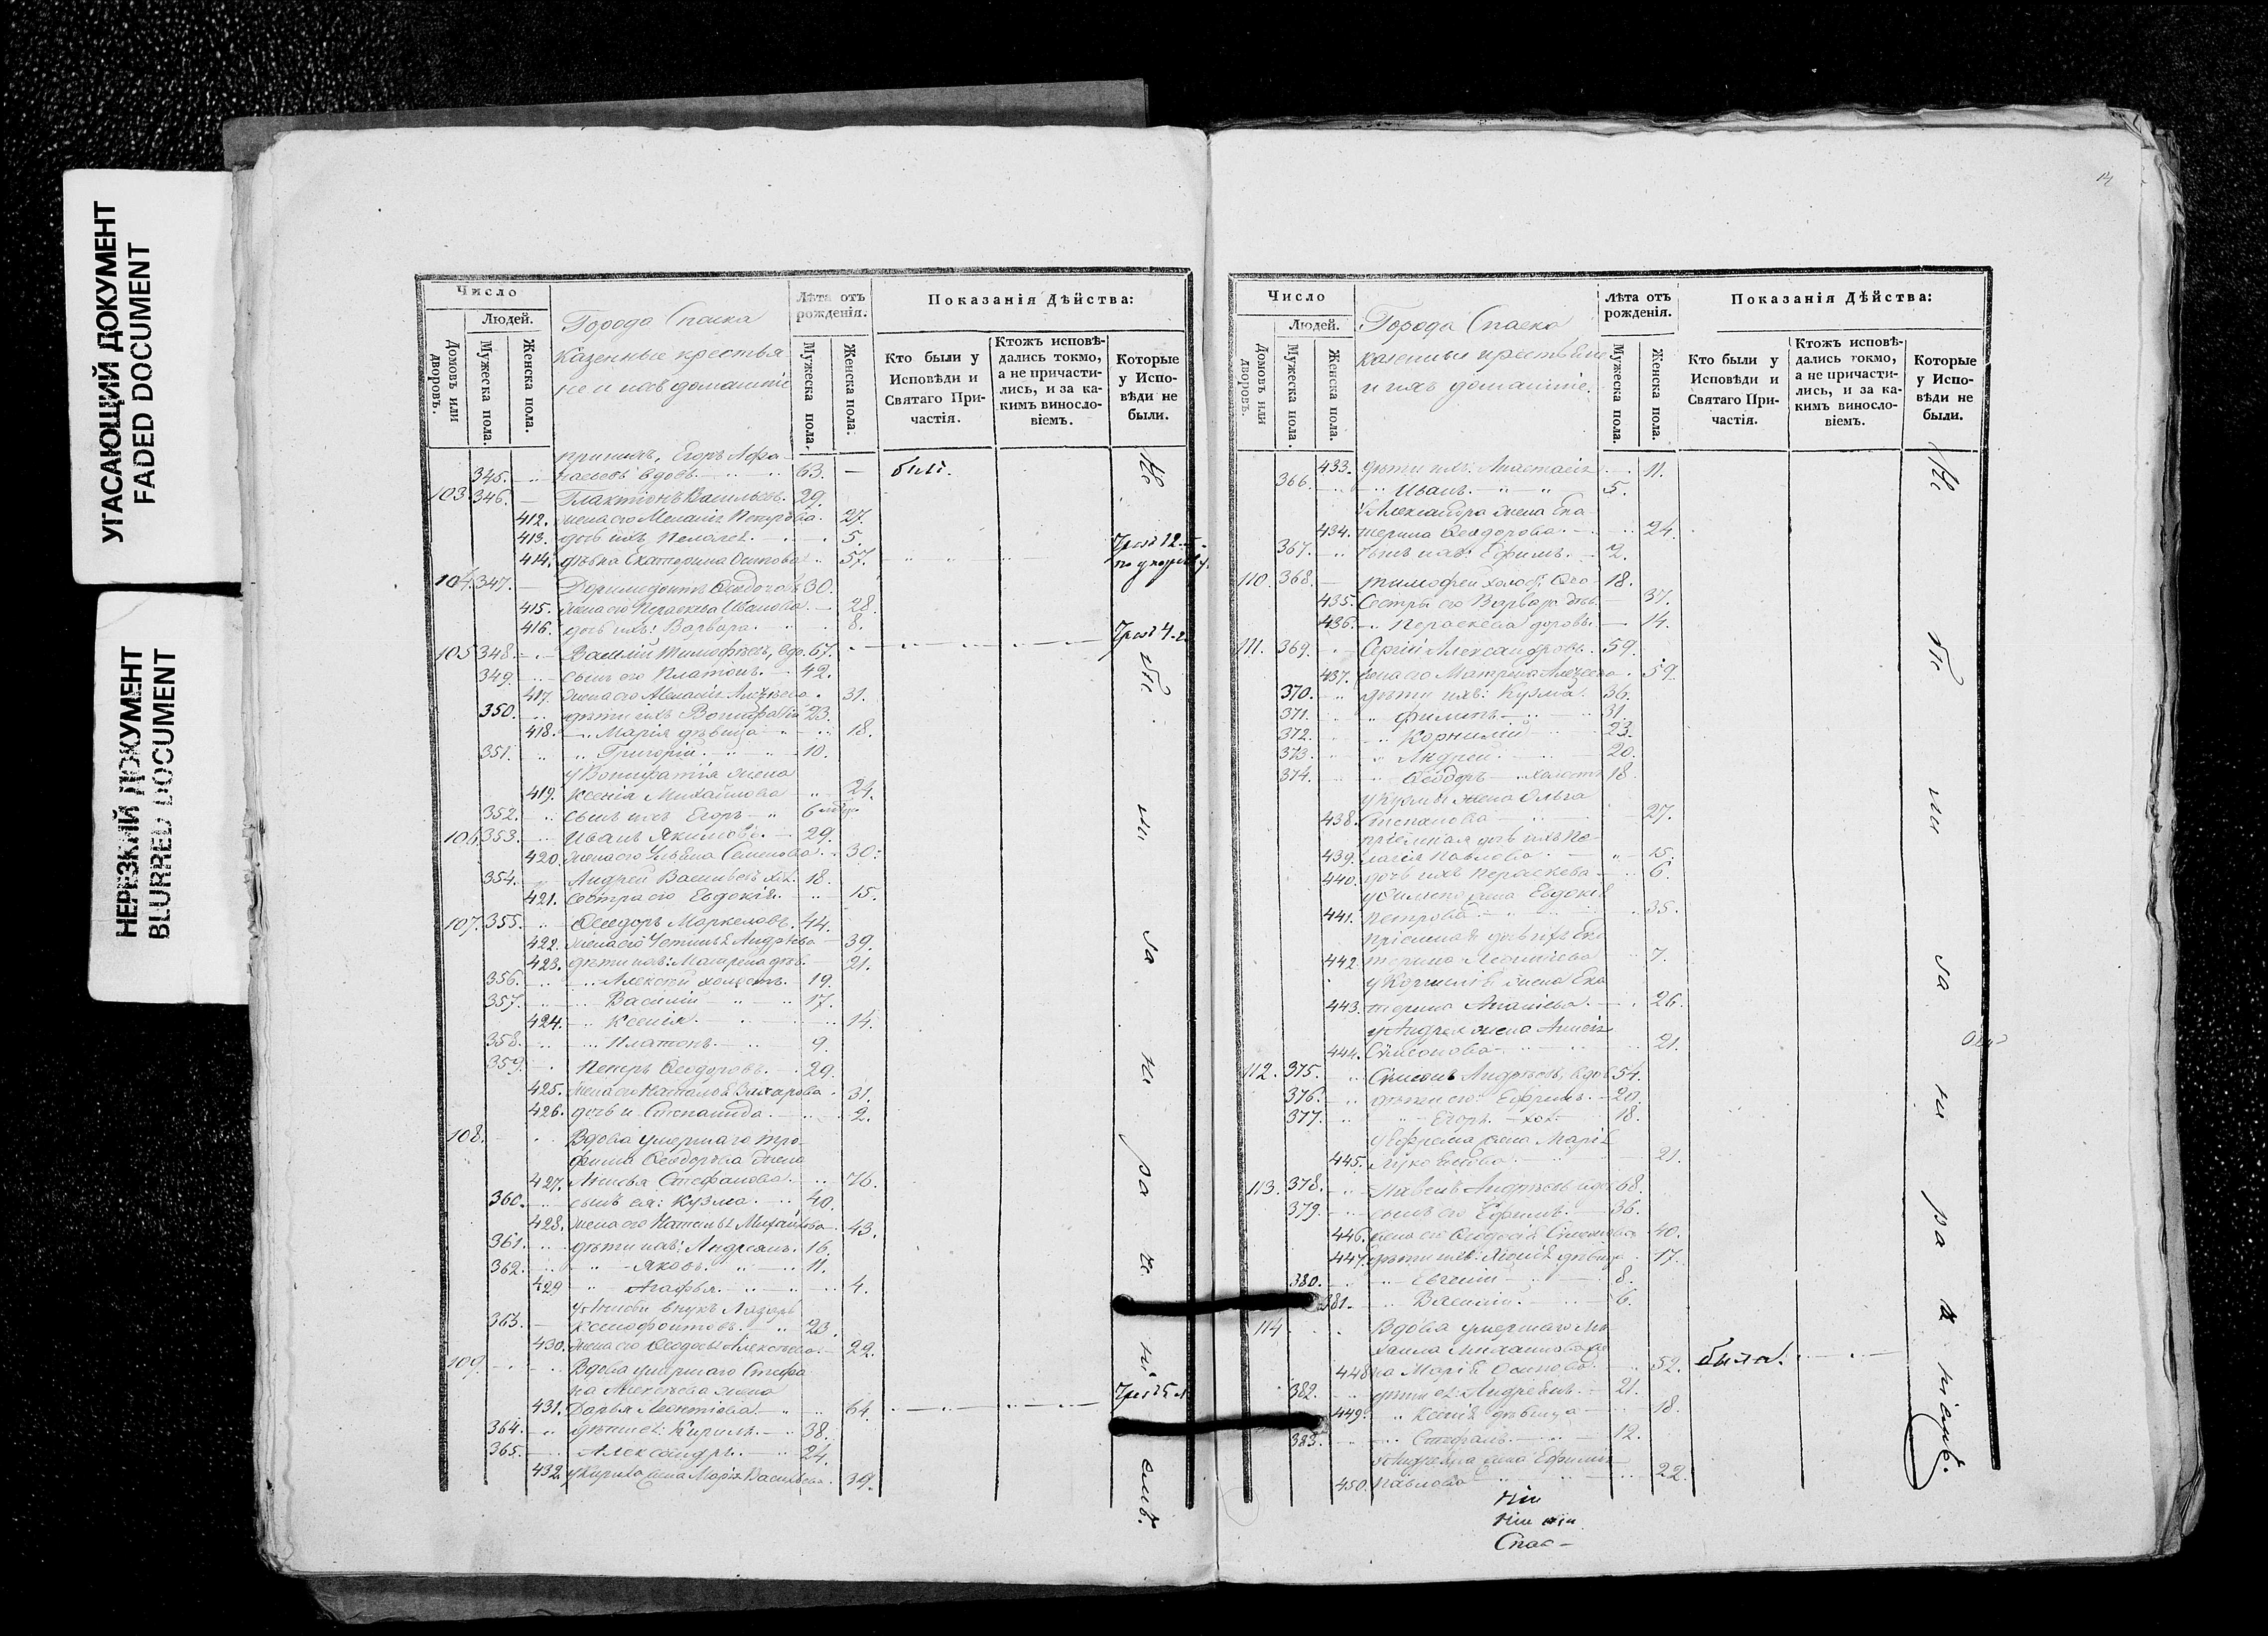 УГАСАЮЩИЙ ДОКУМЕНТ
FADED DOCUMENT
НЕРЕЗКИЙ ДОКУМЕНТ
BLURRED DOCUMENT
Число
Людей.
Домовъ или дворовъ.
Мужеска пола.
Женска пола.
Города Спаска
казенные крестья-
не и ихъ домашніе
Лѣта отъ рожденія.
Мужеска пола.
Женска пола.
Показанія Дѣйства:
Кто были у Исповѣди и Святаго При-
частія.
Ктожъ исповѣ-
дались токмо,
а не причасти-
лись, и за ка-
кимъ винosло-
віемъ.
Которые
у Испо-
вѣди не
были.
Егоръ Афа-
345. насьевъ вдовъ 63. былъ.
103. 346. Галактіонъ Васильевъ. 29.
412. жена его Меланія Петрова. 27.
413. дочь ихъ Пелагея. 5.
414. дѣвка Екатерина Осипова 57.
104. 347. Ѳеодоровъ 30.
415. жена его Параскева Иванова. 28.
416. дочь ихъ: Варвара. 8.
105. 348. Василій Тимофѣевъ, вдо. 67.
349. сынъ его Платонъ. 42.
417. жена его Меланія 31.
350. дѣти ихъ Вонифатій 23.
418. Марія дѣвица 18.
351. Григорій. 10.
у Вонифатія жена
419. Ксенія Михайлова 24.
352. сынъ ихъ Егоръ 6
106. 353. Иванъ Якимовъ. 29.
420. жена его Ульяна Семенова. 30.
354. Андрей Васильевъ хол. 18.
421. сестра его Евдокія. 15.
107. 355. Ѳеодоръ Маркеловъ. 44.
422. жена его Андрѣева 39.
423. дѣти ихъ: Матрена дѣв. 21.
356. Алексѣй холостъ. 19.
357. Василій 17.
424. Ксенія. 14.
358. Платонъ. 9.
359. Петръ Ѳеодоровъ. 29.
425. жена его Наталья Захарова. 31.
426. дочь и Степанида. 2.
108. Вдова умершаго Тро-
фима Ѳеодорова жена
427. Анисья Стефанова. 76.
360. сынъ ея: Кузма. 40.
428. жена его Наталья Михайлова 43.
361. дѣти ихъ: Андреянъ. 16.
362. Яковъ. 11.
429. Агафья. 4.
у Анисьи внукъ Лазарь
363. Ксенофонтовъ. 23.
430. жена его Ѳеодосья Алексѣева. 22.
109. Вдова умершаго Стефа
на Алексѣева жена
431. Дарья Леонтіева. 64.
364. дѣти ея: Кирилъ. 38.
365. Александръ. 24.
432. у Кирила жена Марія Васильева. 39.
14
Число
Людей.
Домовъ или дворовъ.
Мужеска пола.
Женска пола.
Города Спаска
казенные крестьяне
и ихъ домашніе.
Лѣта отъ рожденія.
Мужеска пола.
Женска пола.
Показанія Дѣйства:
Кто были у
Исповѣди и
Святаго При-
частія.
Ктожъ исповѣ-
дались токмо,
а не причасти-
лись, и за ка-
кимъ винocло-
віемъ.
Которые
у Испо-
вѣди не
были.
433. дѣти ихъ: Анастасія 11.
366. Иванъ. 5.
у Александра жена Ека
434. терина Ѳеодорова. 24.
367. сынъ ихъ: Ефимъ. 2.
110. 368. Тимофей холос. Ѳео- 18.
435. сестры его Варвара дѣв. 37.
436. Параскева доровы. 14.
111. 369. Сергій Александровъ. 59.
437. жена его Матрена 59.
370. дѣти ихъ: Кузма. 36.
371. Филипъ 31.
372. Корнилій 23.
373. Андрей. 20.
374. Ѳеодоръ холостъ 18.
у Кузмы жена Ольга
438. Степанова 27.
пріемная дочь ихъ Пе-
439. лагія Павлова. 15.
440. дочь ихъ Параскева 6.
у Филипа жена Евдокія
441. Петрова. 35.
Пріемная дочь ихъ Ека
442. терина Леонтіева 7.
у Корнилія жена Ека
443. терина Ананіева. 26.
у Андрея жена Анисія
444. Симеонова 21.
112. 375. Симеонъ Андрѣевъ, вдов 54.
376. дѣти его: Ефремъ. 20.
377. Егоръ. хол. 18.
у Ефрема жена Марія
445. 21.
113. 378. Павелъ Андрѣевъ вдов 68.
379. сынъ его Ефимъ. 36.
446. жена его Ѳеодосія Симеонова 40.
447. дѣти ихъ: дѣвица 17.
380. Евгеній 8.
381. Василій. 6.
114. Вдова умершаго Ми-
хаила Михайлова же
448. на Марія Осипова. 52. была.
382. дѣти ея: Андреянъ. 21.
449. Ксенія дѣвица 18.
383. Стефанъ. 12.
у Андреяна жена Ефимія
450. Павлова 22.
Спас-